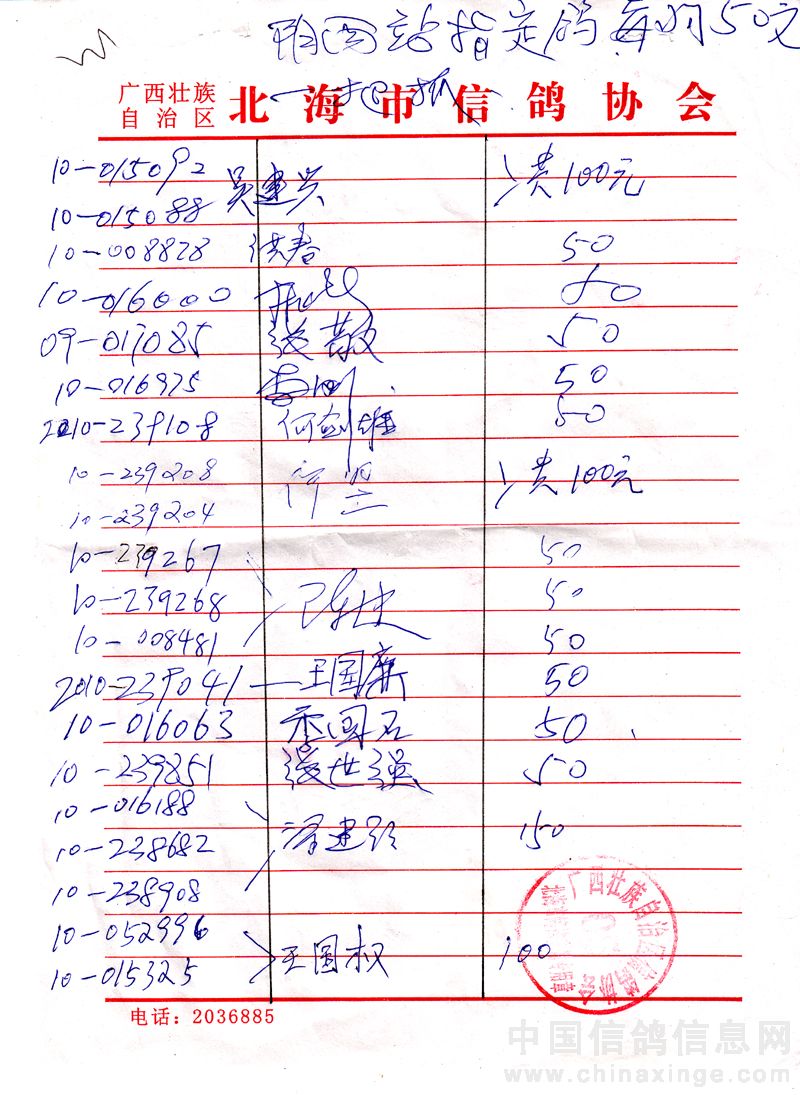 站指定鸽每羽50元
广西壮族
自治区 北海市信鸽协会
10-015092
吴建兴 共100元
10-015088
10-008828 洪春 50
10-016000 50
09-017085 50
10-016975 50
2010-239108 何剑雄 50
10-239208
许坚 共100元
10-239204
10-239267 50
10-239268 50
10-008481 50
2010-239041 — 王国新 50
10-016063 50
10-239851 张世强 50
10-016188
10-238682 150
10-238908
10-052996
王国权 100
10-015325
广西壮族自治区 信鸽协会
电话：2036885
中国信鸽信息网
www.chinaxinge.com